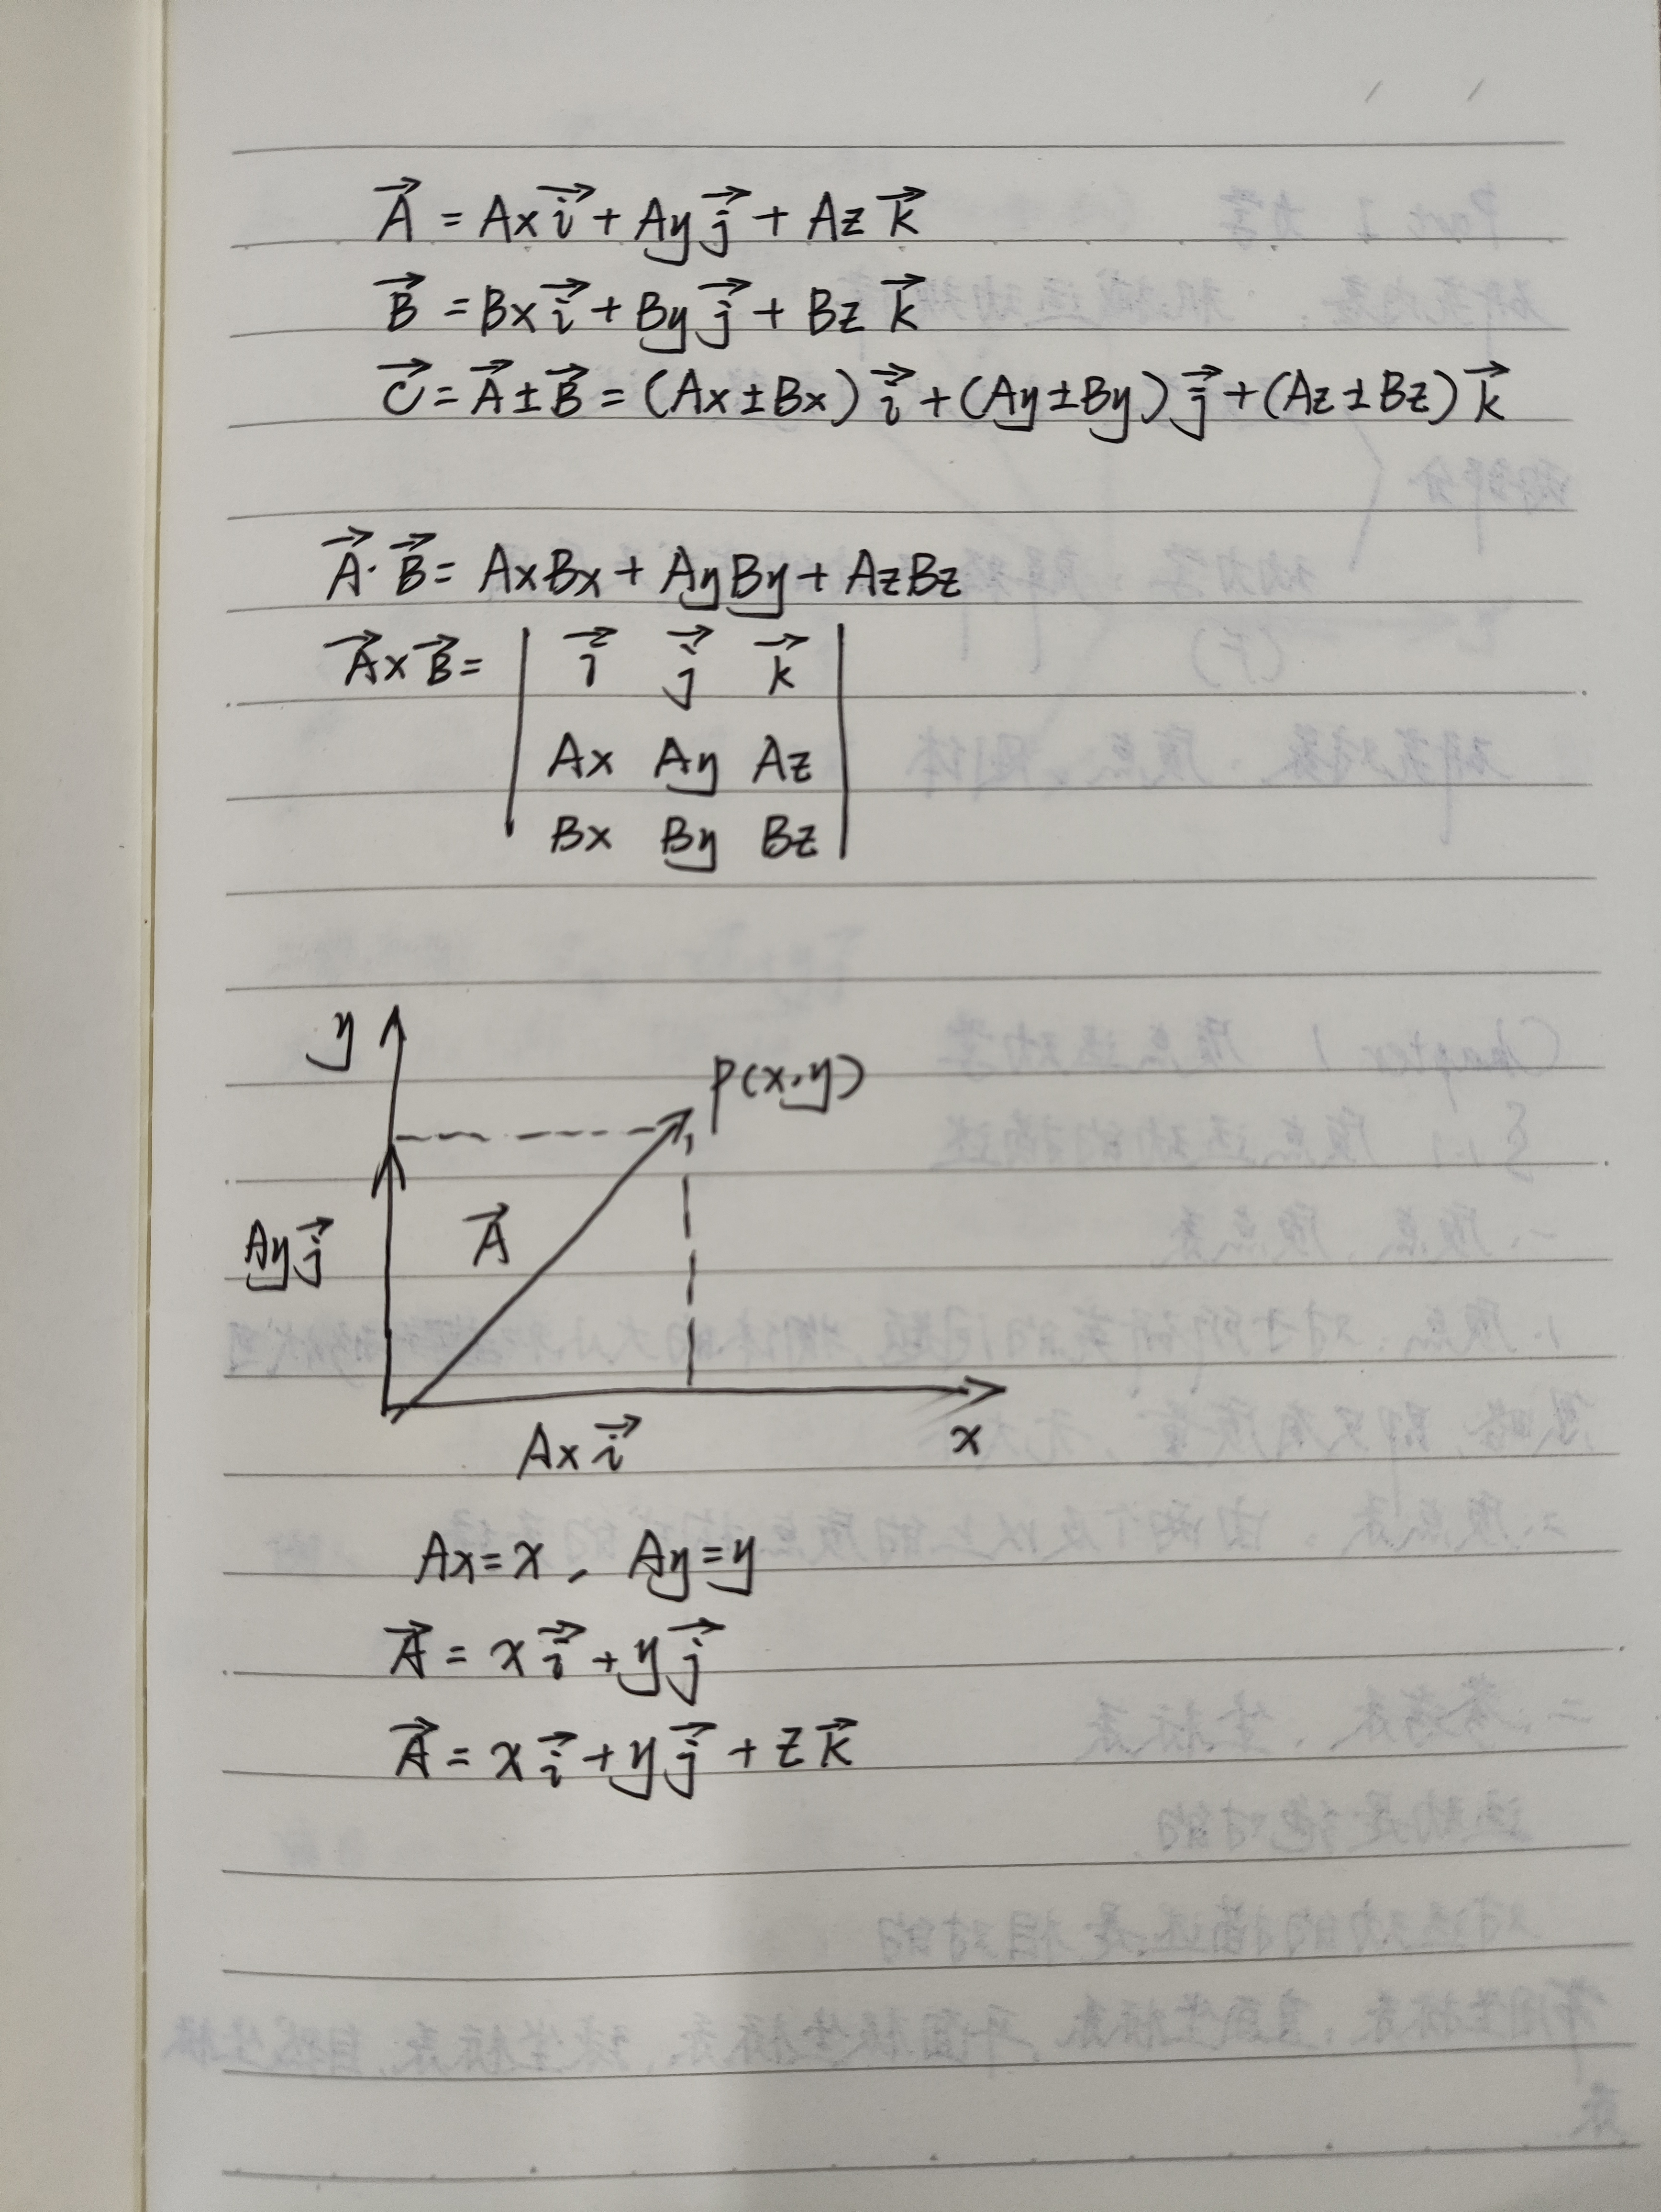 A⃗ = Ax i⃗ + Ay j⃗ + Az k⃗
B⃗ = Bx i⃗ + By j⃗ + Bz k⃗
C⃗ = A⃗ ± B⃗ = (Ax ± Bx) i⃗ + (Ay ± By) j⃗ + (Az ± Bz) k⃗
A⃗ · B⃗ = AxBx + AyBy + AzBz
A⃗ × B⃗ = | i⃗ j⃗ k⃗ |
| Ax Ay Az |
| Bx By Bz |
y
P(x,y)
Ay j⃗
A⃗
Ax i⃗
x
Ax = x, Ay = y
A⃗ = x i⃗ + y j⃗
A⃗ = x i⃗ + y j⃗ + z k⃗